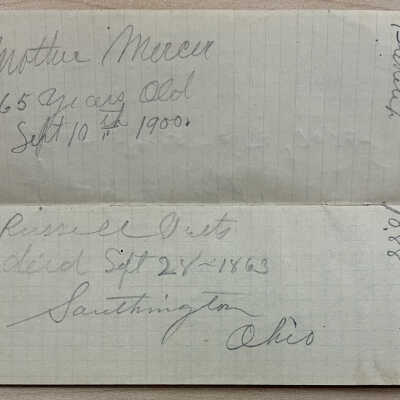 Mother Mercer
65 Years Old
Sept 10th 1900.
Russell
died Sept 28-1863
Southington
Ohio